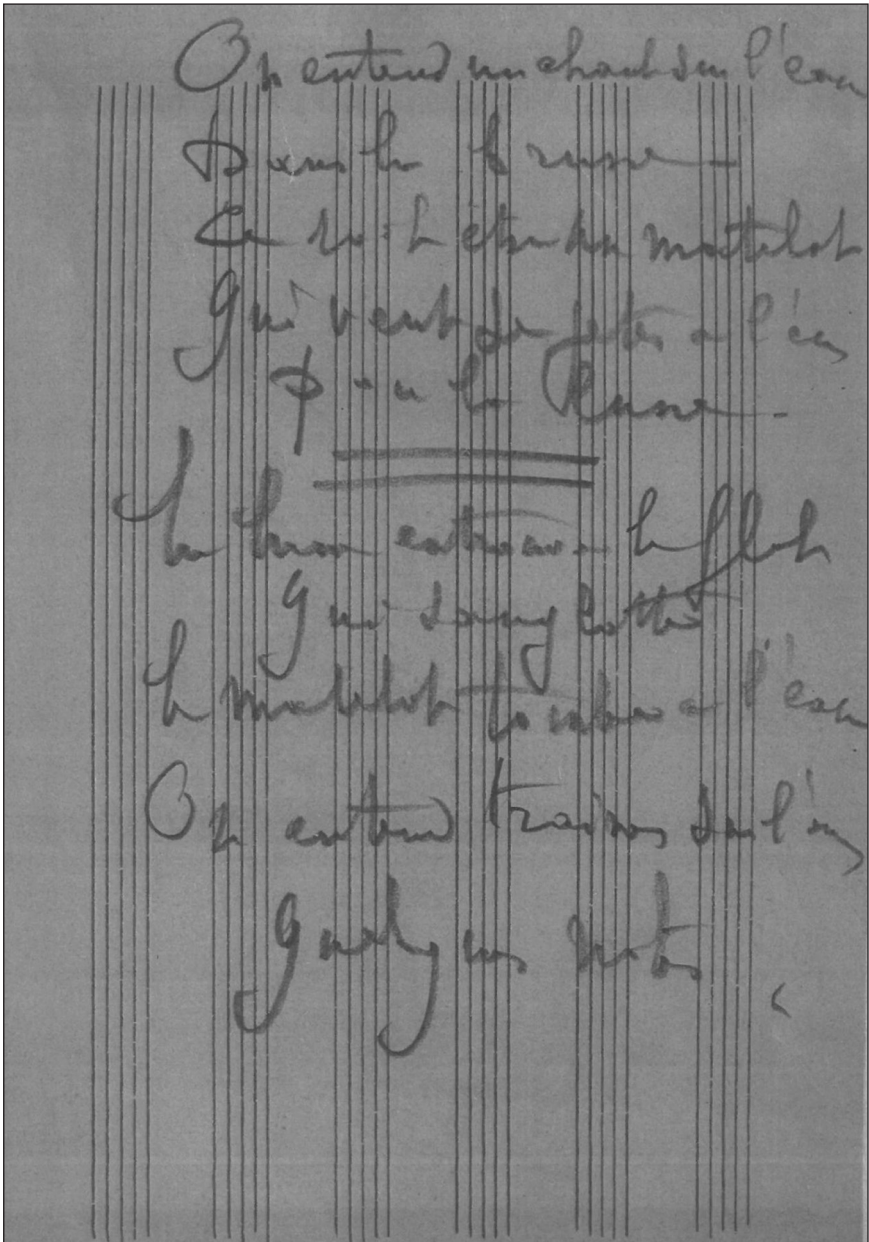 On entend un chant sur l'eau
Dans la brume
Ce doit être un matelot
Qui veut se jeter à l'eau
Pour la lune
La lune entrouvre le flot
Qui sanglotte
Le matelot tombe à l'eau
On entend traîner sur l'eau
Quelques notes